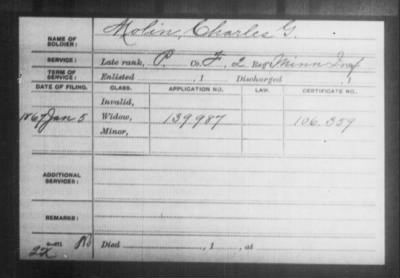 NAME OF SOLDIER: Molin, Charles G.
SERVICE: Late rank, P. Co. F, 2 Reg't Minn Inf
TERM OF SERVICE: Enlisted , 1 Discharged , 1
DATE OF FILING. CLASS. APPLICATION NO. LAW. CERTIFICATE NO.
Invalid,
1867 Jan 5 Widow, 139.987 106.359
Minor,
ADDITIONAL SERVICES:
REMARKS:
Died , 1 , at